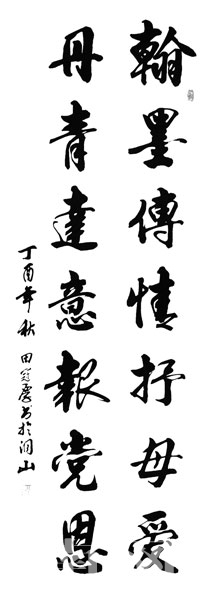 翰墨傳情抒母爱
丹青達意報党恩
丁酉年秋 田 書於 山